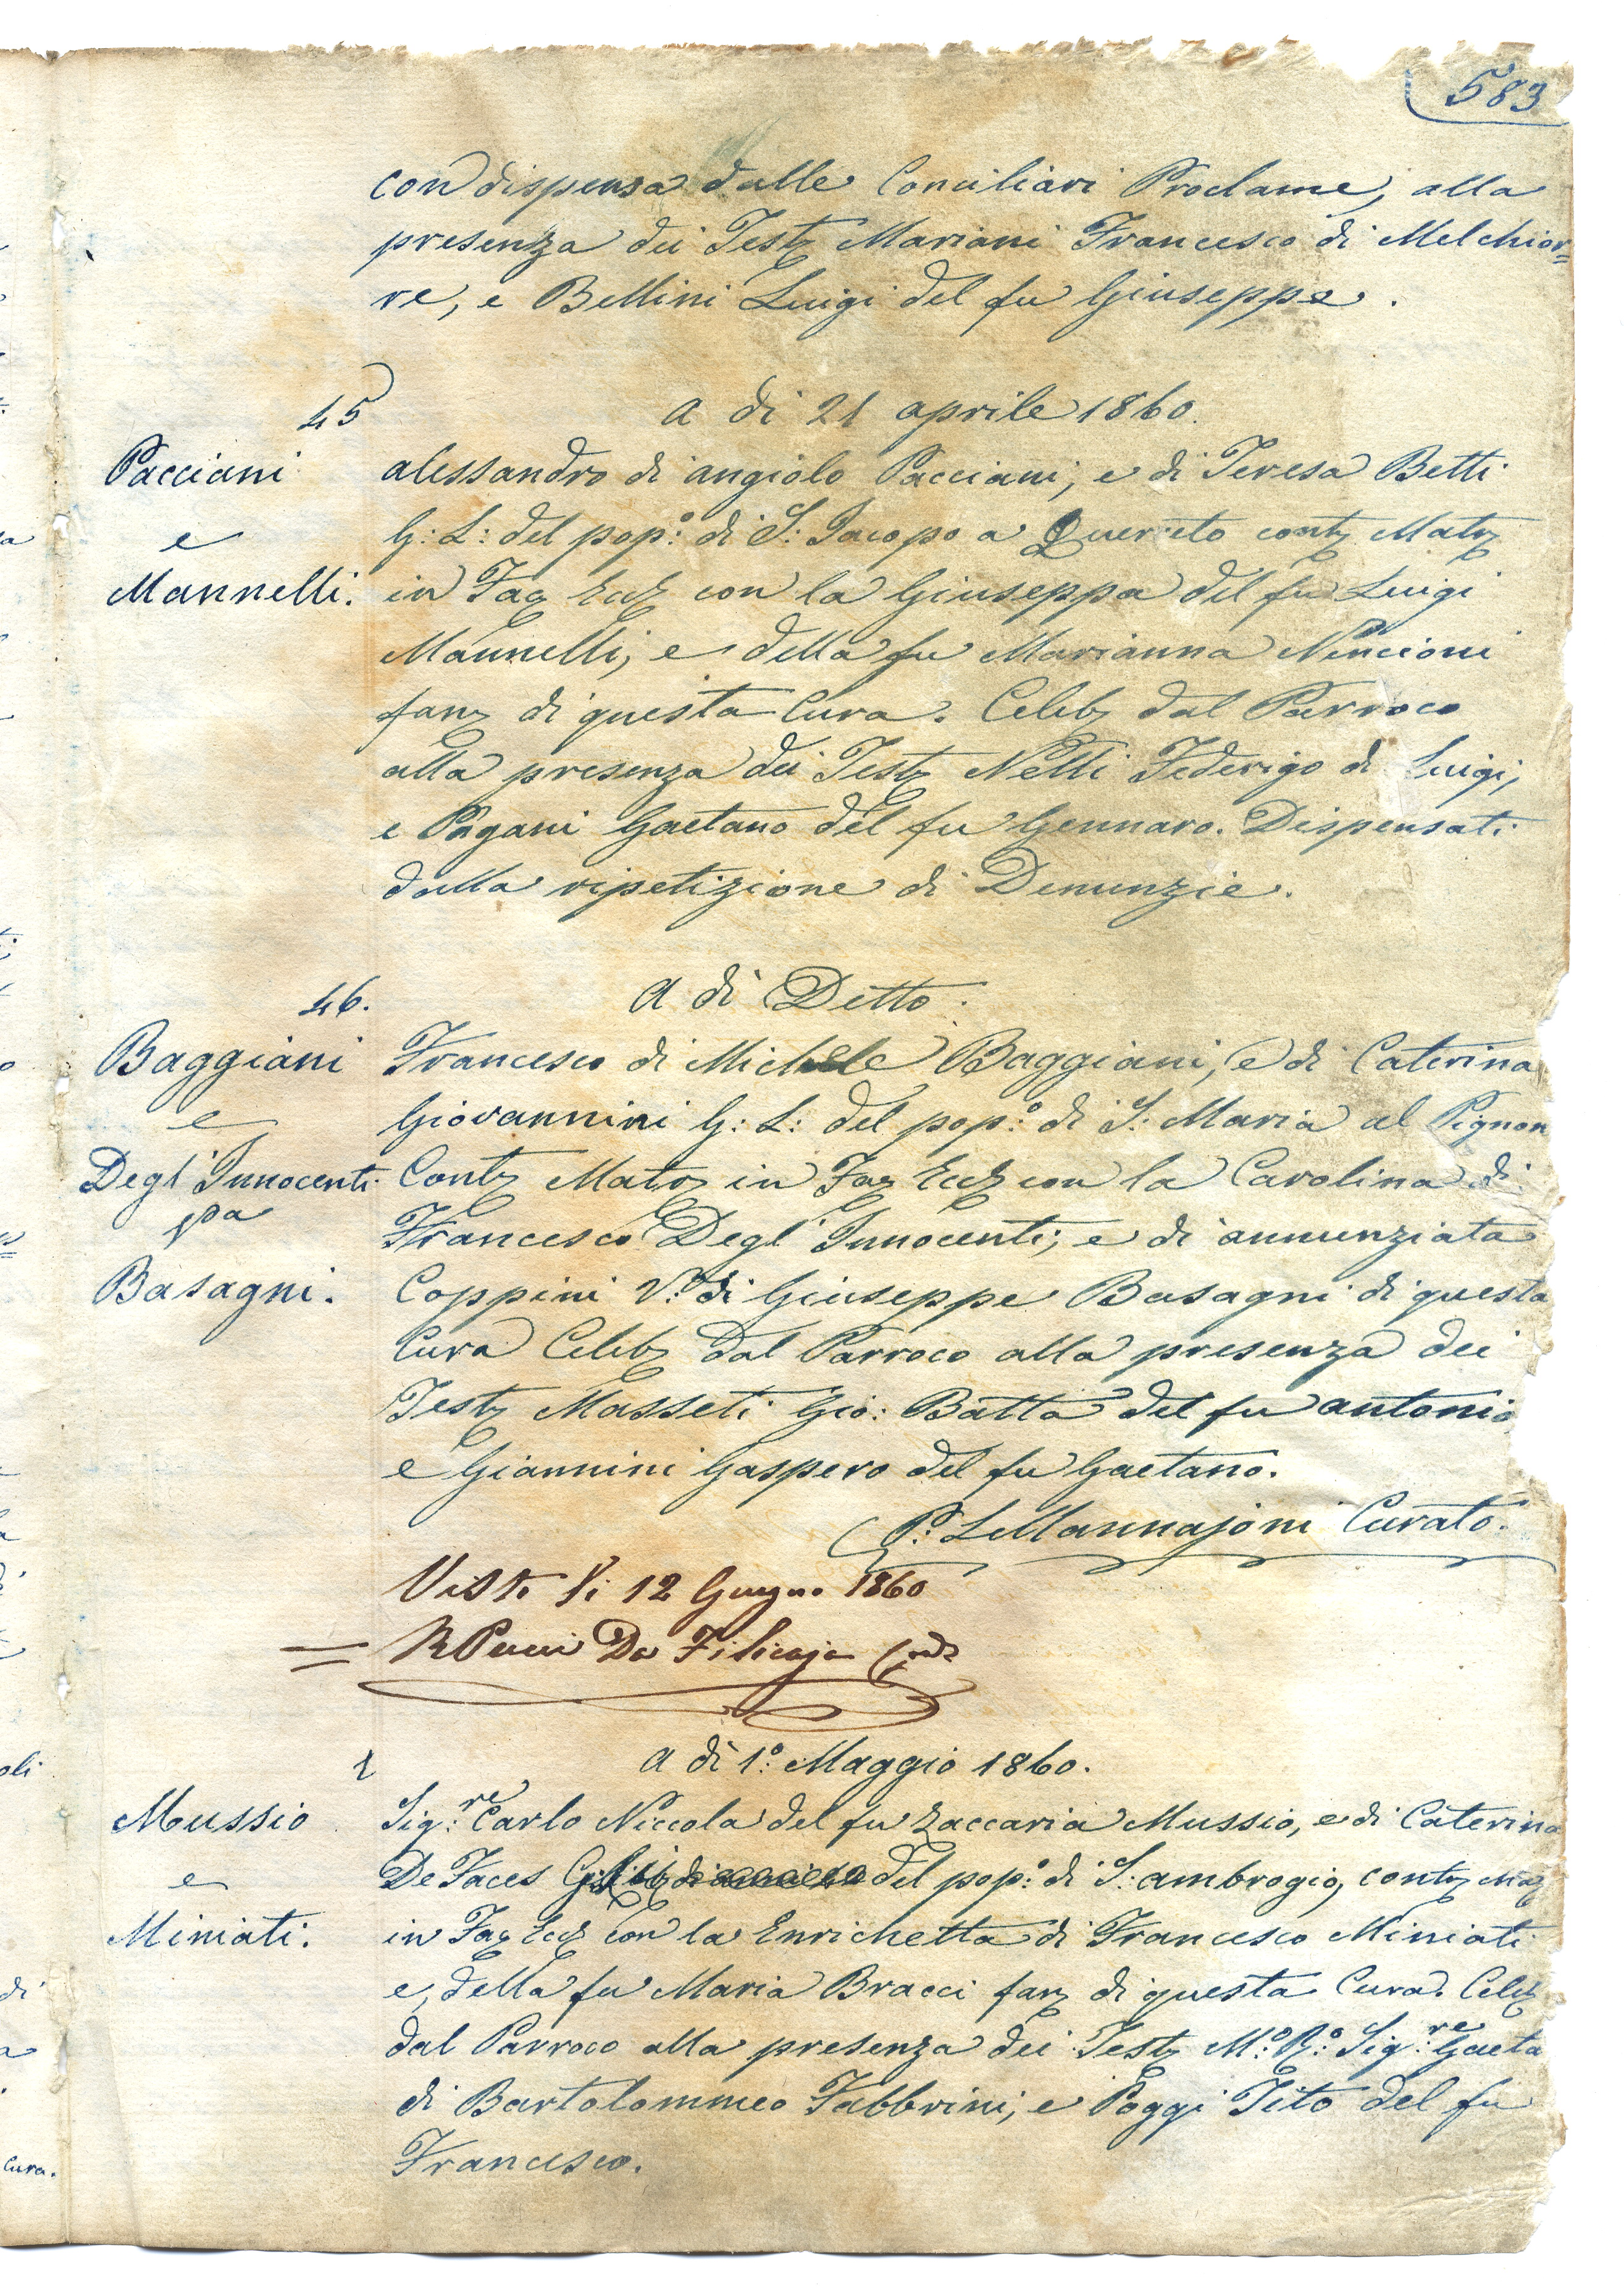 583
con dispensa dalle Conciliari Proclame, alla
presenza dei Test Mariani Francesco di Melchior=
re, e Bellini Luigi del fu Giuseppe.
45 A dì 21 aprile 1860.
Pacciani alessandro di angiolo Pacciani, e di Teresa Betti
e G: L: del pop:º di S: Jacopo a Querceto contz Matz
Mannelli. in Faz Eccz con la Giuseppa del fu Luigi
Mannelli, e della fu Marianna Nencioni
fanz di questa Cura. Celebz dal Parroco
alla presenza dei Testz Nelli Federigo di Luigi,
e Pagani Gaetano del fu Gennaro. Dispensati
dalla ripetizione di Denunzie.
46. A dì Detto.
Baggiani Francesco di Michele Baggiani, e di Caterina
e Giovannini G: L: del pop:º di S: Maria al Pignon
Degl'Innocenti Contz Matz in Faz Eccz con la Carolina di
pa Francesco Degl'Innocenti, e di annunziata
Basagni. Coppini V:ª di Giuseppe Basagni di questa
Cura Celebz dal Parroco alla presenza dei
Testz Masseti Gio: Batta del fu antonio
e Giannini Gaspero del fu Gaetano.
P: L Mannajoni Curato.
Visto li 12 Giugno 1860
R Pucci Da Filicaja
1 A dì 1:º Maggio 1860.
Mussio Sig:re Carlo Niccola del fu Zaccaria Mussio, e di Caterina
e De Faces del pop:º di S: ambrogio, contz Maz
Miniati. in Faz Eccz con la Enrichetta di Francesco Miniati
e, della fu Maria Bracci fanz di questa Cura. Celebz
dal Parroco alla presenza dei Testz M:º R:º Sig:re Gaeta
di Bartolommeo Fabbrini, e Poggi Tito del fu
Francesco.